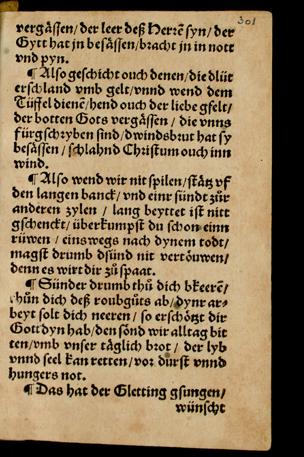 301
vergässen/der leer deß Herrē syn/der
Gytt hat in besässen/bracht jn in nott
vnd pyn.
¶ Also geschicht ouch denen/die blüt
erschland vmb gelt/vnnd wend dem
Tüffel dienē/hend ouch der liebe gselt/
der botten Gots vergässen / die vnns
fürgschryben sind/dwindsbrut hat sy
besässen / schlahnd Christum ouch inn
wind.
¶ Also wend wir nit spilen/stätz vf
den langen banck/vnd einr sündt zůr
anderen zylen / lang beyttet ist nitt
gschenckt/überkumpst du schon einn
rüwen / einswegs nach dynem todt/
magst drumb dsünd nit vertöuwen/
denn es wirt dir zů spaat.
¶ Sünder drumb thů dich bkeerē/
thůn dich deß roubgůts ab/dynr ar-
beyt solt dich neeren / so erschötzt dir
Gott dyn hab/den sönd wir alltag bit
ten/vmb vnser täglich brot / der lyb
vnnd seel kan retten/vor durst vnnd
hungers not.
¶ Das hat der Gletting gsungen/
wünscht